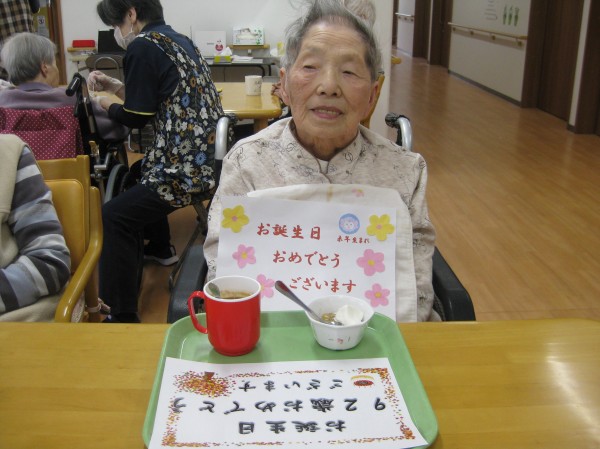 お誕生日
おめでとう
ございます
お誕生日
92歳おめでとう
ございます